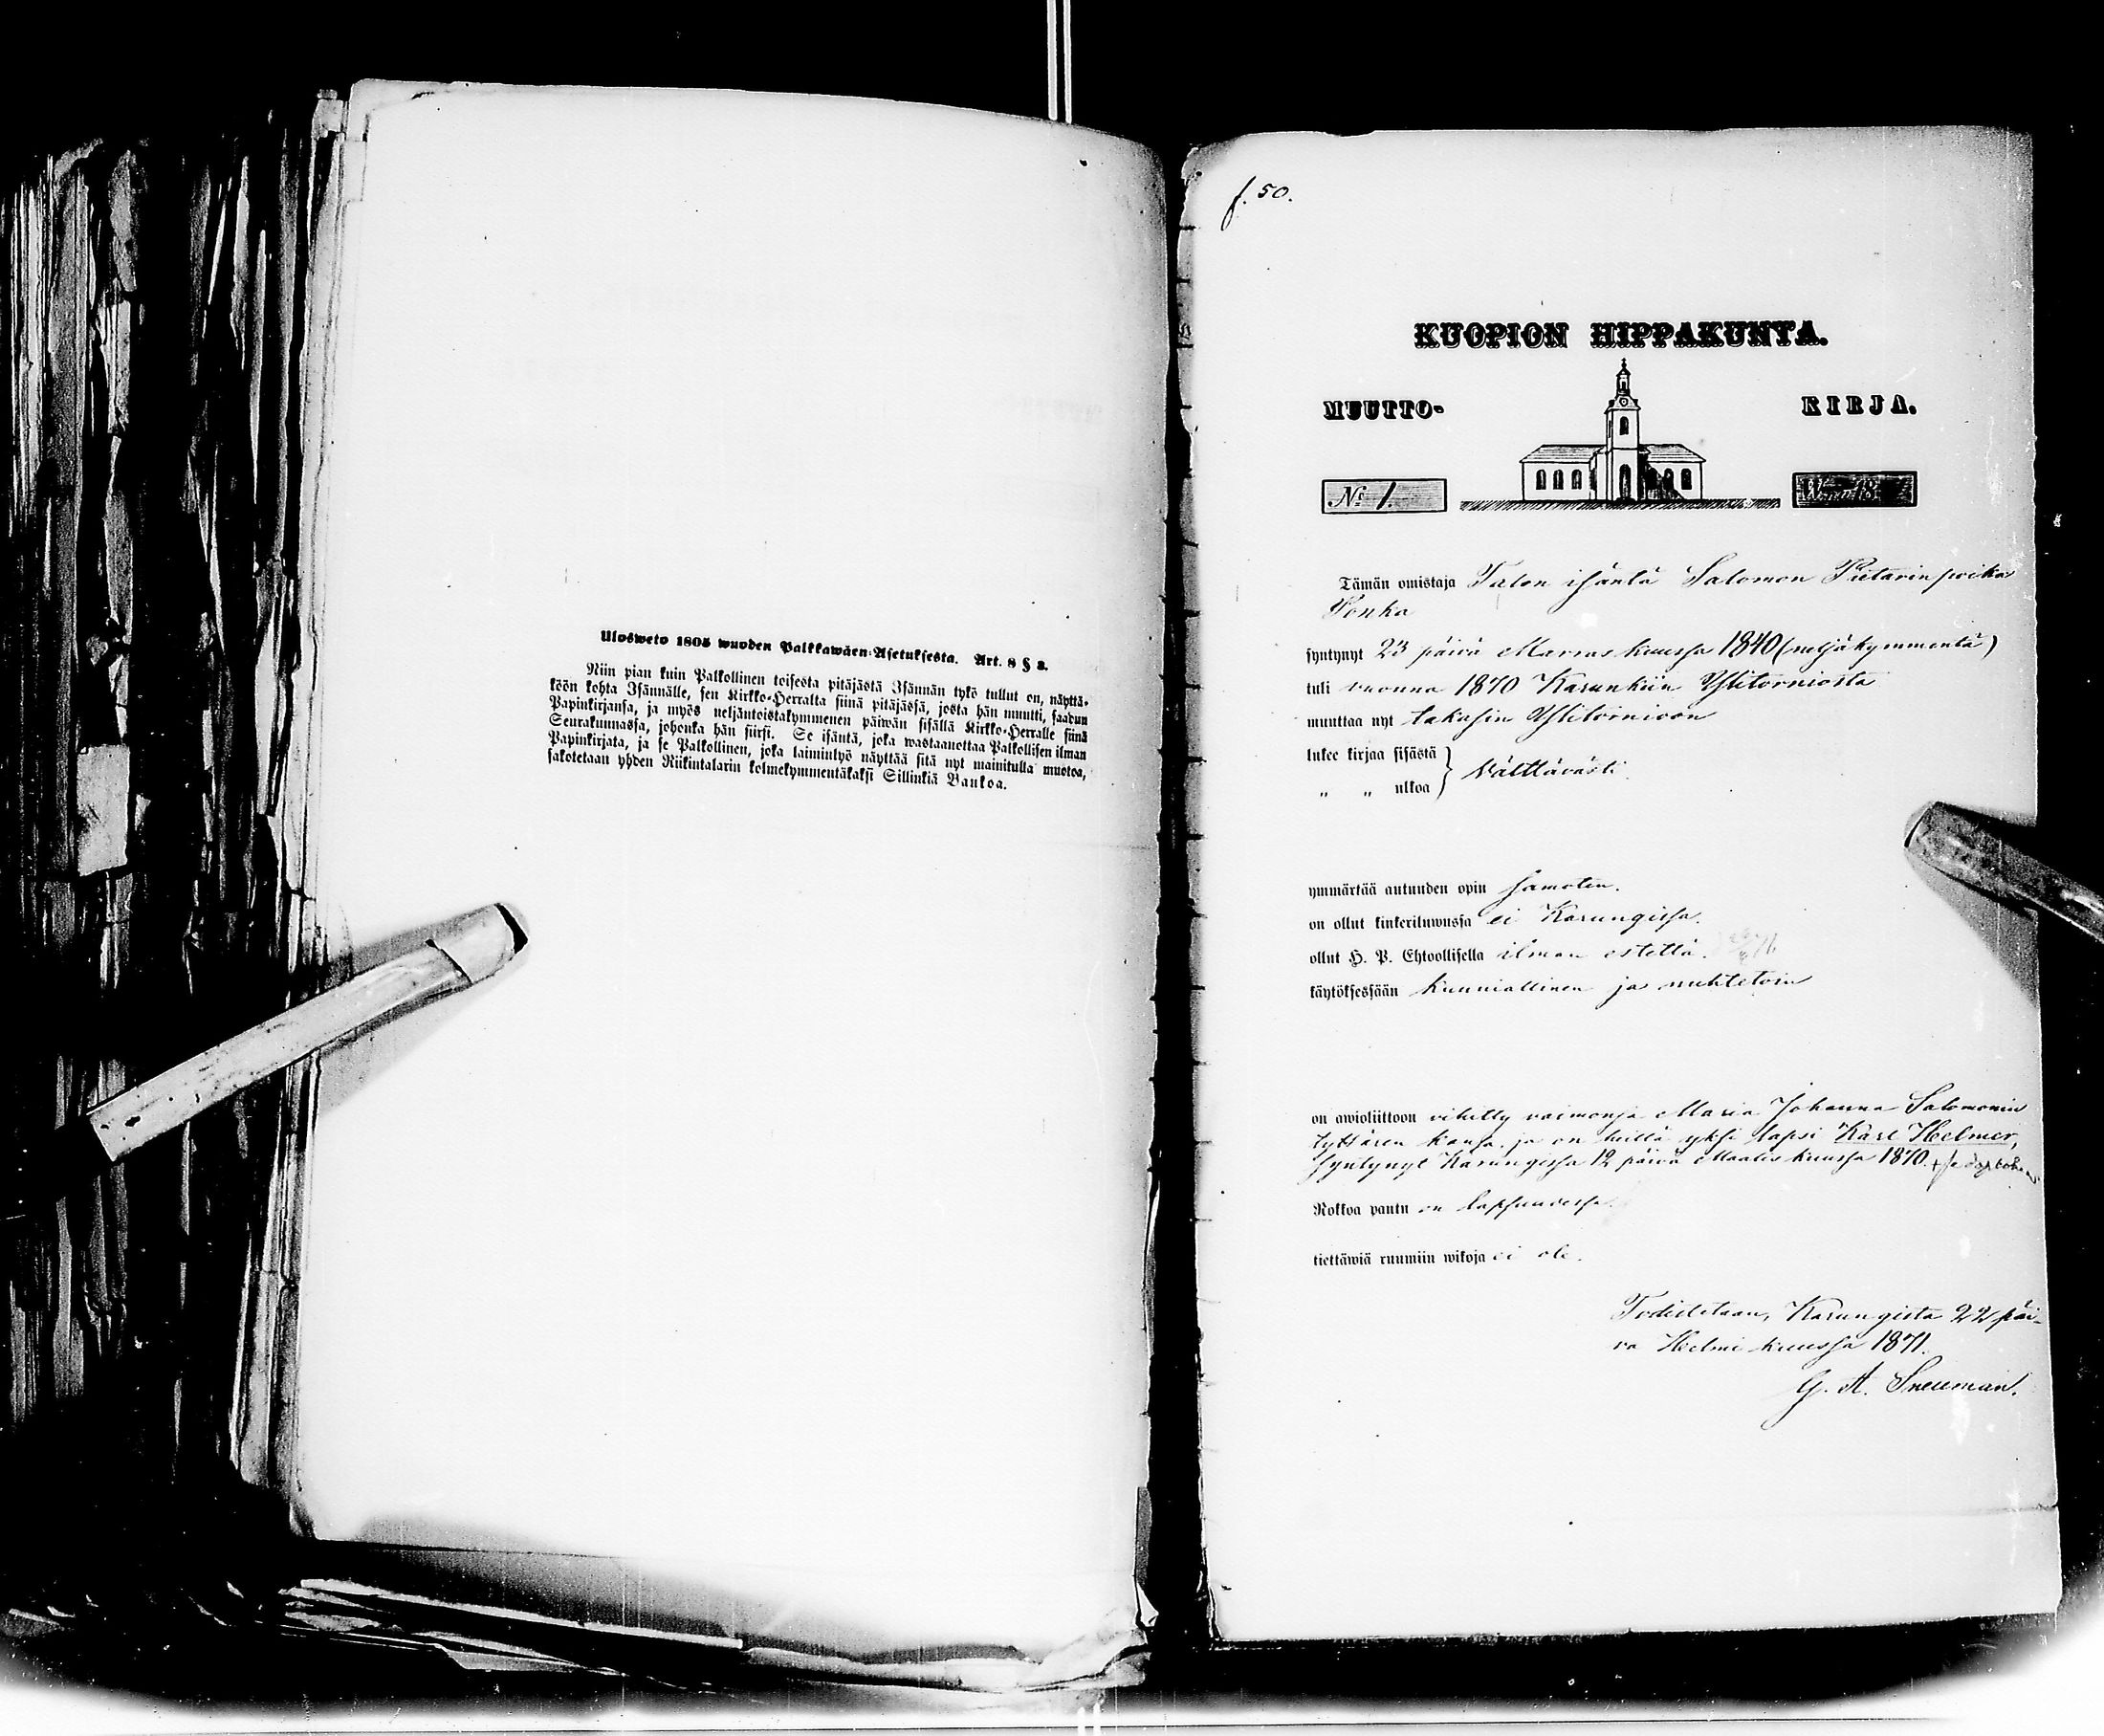 Ulosweto 1805 wuoden Palkkawäen-Asetuksesta. Art. 8 § 2.
Niin pian kuin Palkollinen toisesta pitäjästä Isännän tykö tullut on, näyttä-
köön kohta Isännälle, sen Kirkko-Herralta siinä pitäjässä, josta hän muutti, saadun
Papinkirjansa, ja myös neljäntoistakymmenen päiwän sisällä Kirkko-Herralle siinä
Seurakunnassa, johonka hän siirsi. Se isäntä, joka wastaanottaa Palkollisen ilman
Papinkirjata, ja se Palkollinen, joka laiminlyö näyttää sitä nyt mainitulla muotoa,
sakotetaan yhden Riikintalarin kolmekymmentäkaksi Sillinkiä Bankoa.
f. 50.
KUOPION HIPPAKUNTA.
MUUTTO- KIRJA.
No 1. W. 18
Tämän omistaja Talon isäntä Salomon Pietarin poika
Ponka
syntynyt 23 päivä Marras kuussa 1840 (neljäkymmentä)
tuli vuonna 1870 Karunkiin Ylitorniosta
muuttaa nyt takasin Ylitornioon
lukee kirjaa sisästä } Välttävästi.
„ „ ulkoa
ymmärtää autuuden opin samoten.
on ollut kinkeriluwussa ei Karungissa.
ollut H. P. Ehtoollisella ilman estettä.
käytöksessään kunniallinen ja nuhtetoin
on awioliittoon vihitty vaimonsa Maria Johanna Salomonin
tyttären kansa, ja on heillä yksi lapsi Karl Helmer,
syntynyt Karungissa 12 päivä Maalis kuussa 1870.
Rokkoa pantu on lapsuudessa.
tiettäwiä ruumiin wikoja ei ole.
Todistetaan, Karungista 22 päi-
vä Helmi kuussa 1871.
G. A. Sneuman.